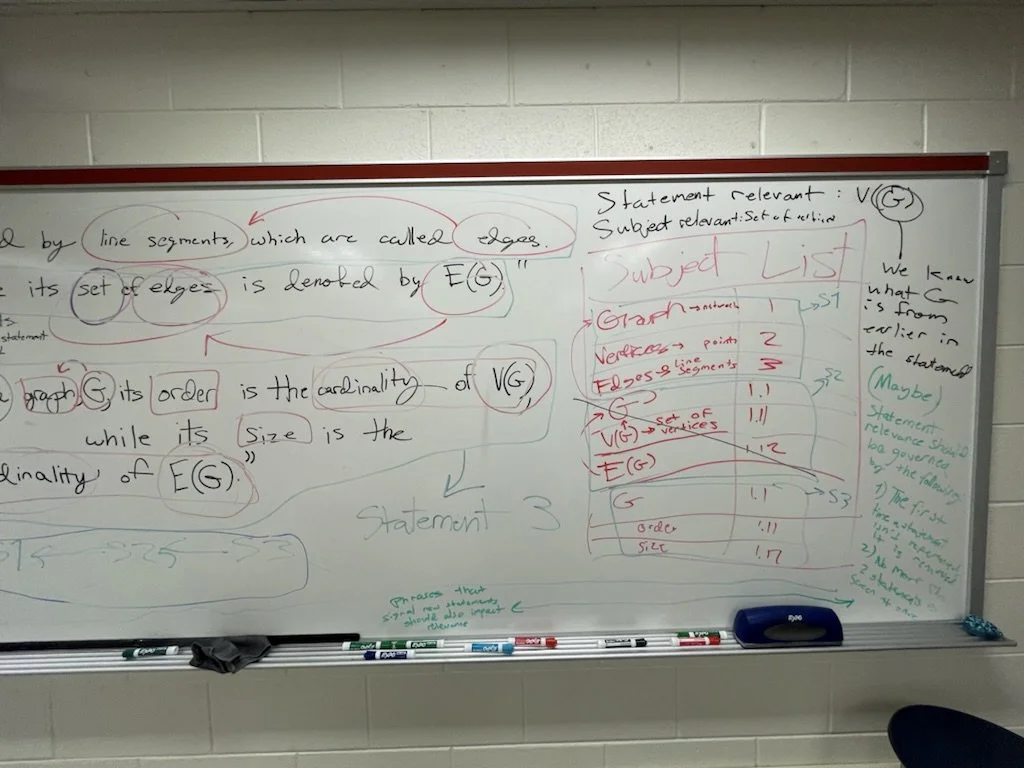 d by line segments, which are called edges.
its set of edges is denoted by E(G)."
statement
graph G, its order is the cardinality of V(G),
while its size is the
dinality of E(G)."
Statement 3
S2 S3
Phrases that
signal new statements
should also impact
relevance
Statement relevant: V(G)
Subject relevant: Set of
Subject List
Graph → network 1
Vertices → points 2
Edges → line segments 3
G 1.1
V(G) → set of vertices 1.11
E(G) 1.12
G 1.1
order 1.11
size 1.12
S1
S2
S3
We know
what G
is from
earlier in
the statement
(Maybe)
Statement
relevance should
be governed
by the following:
1) The first
time a statement
isn't referenced
it is removed
2) No more than
2 statements
EXPO